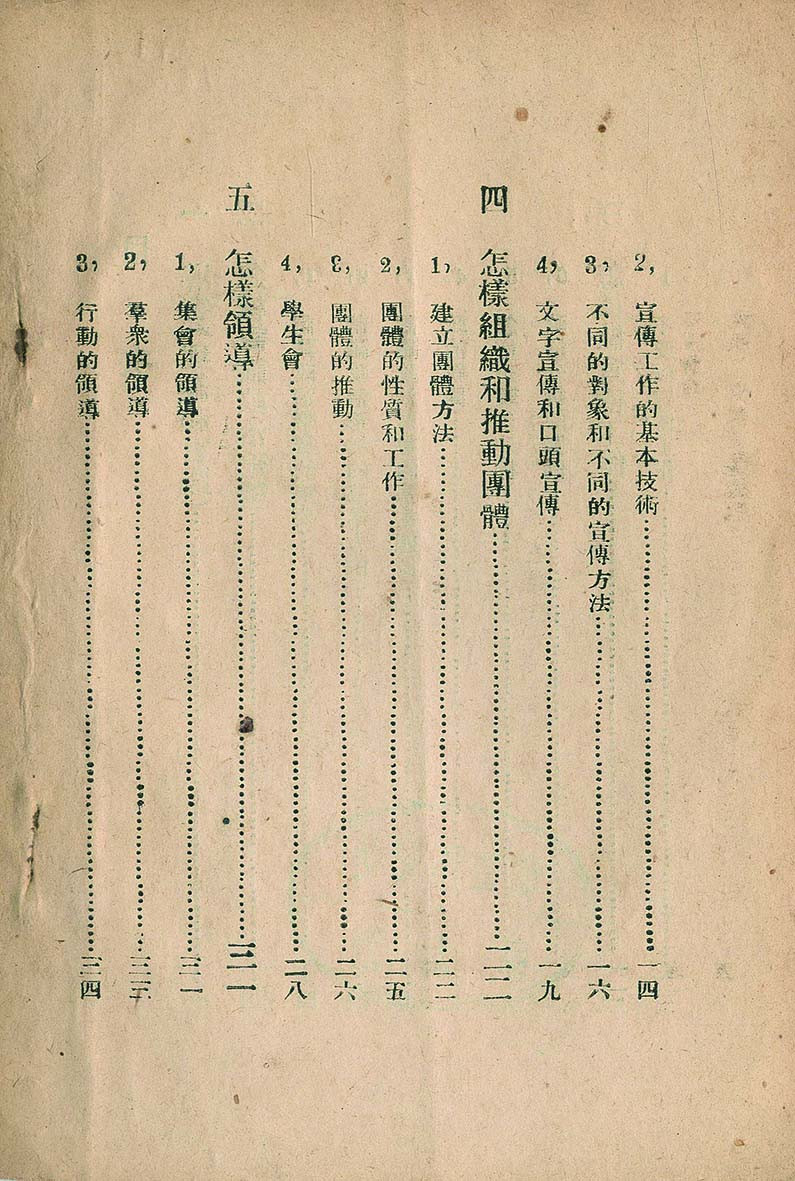 2, 宣傳工作的基本技術…………一四
3, 不同的對象和不同的宣傳方法…………一六
4, 文字宣傳和口頭宣傳…………一九
四 怎樣組織和推動團體…………二二
1, 建立團體方法…………二二
2, 團體的性質和工作…………二五
3, 團體的推動…………二六
4, 學生會…………二八
五 怎樣領導…………三一
1, 集會的領導…………三一
2, 羣衆的領導…………三三
3, 行動的領導…………三四